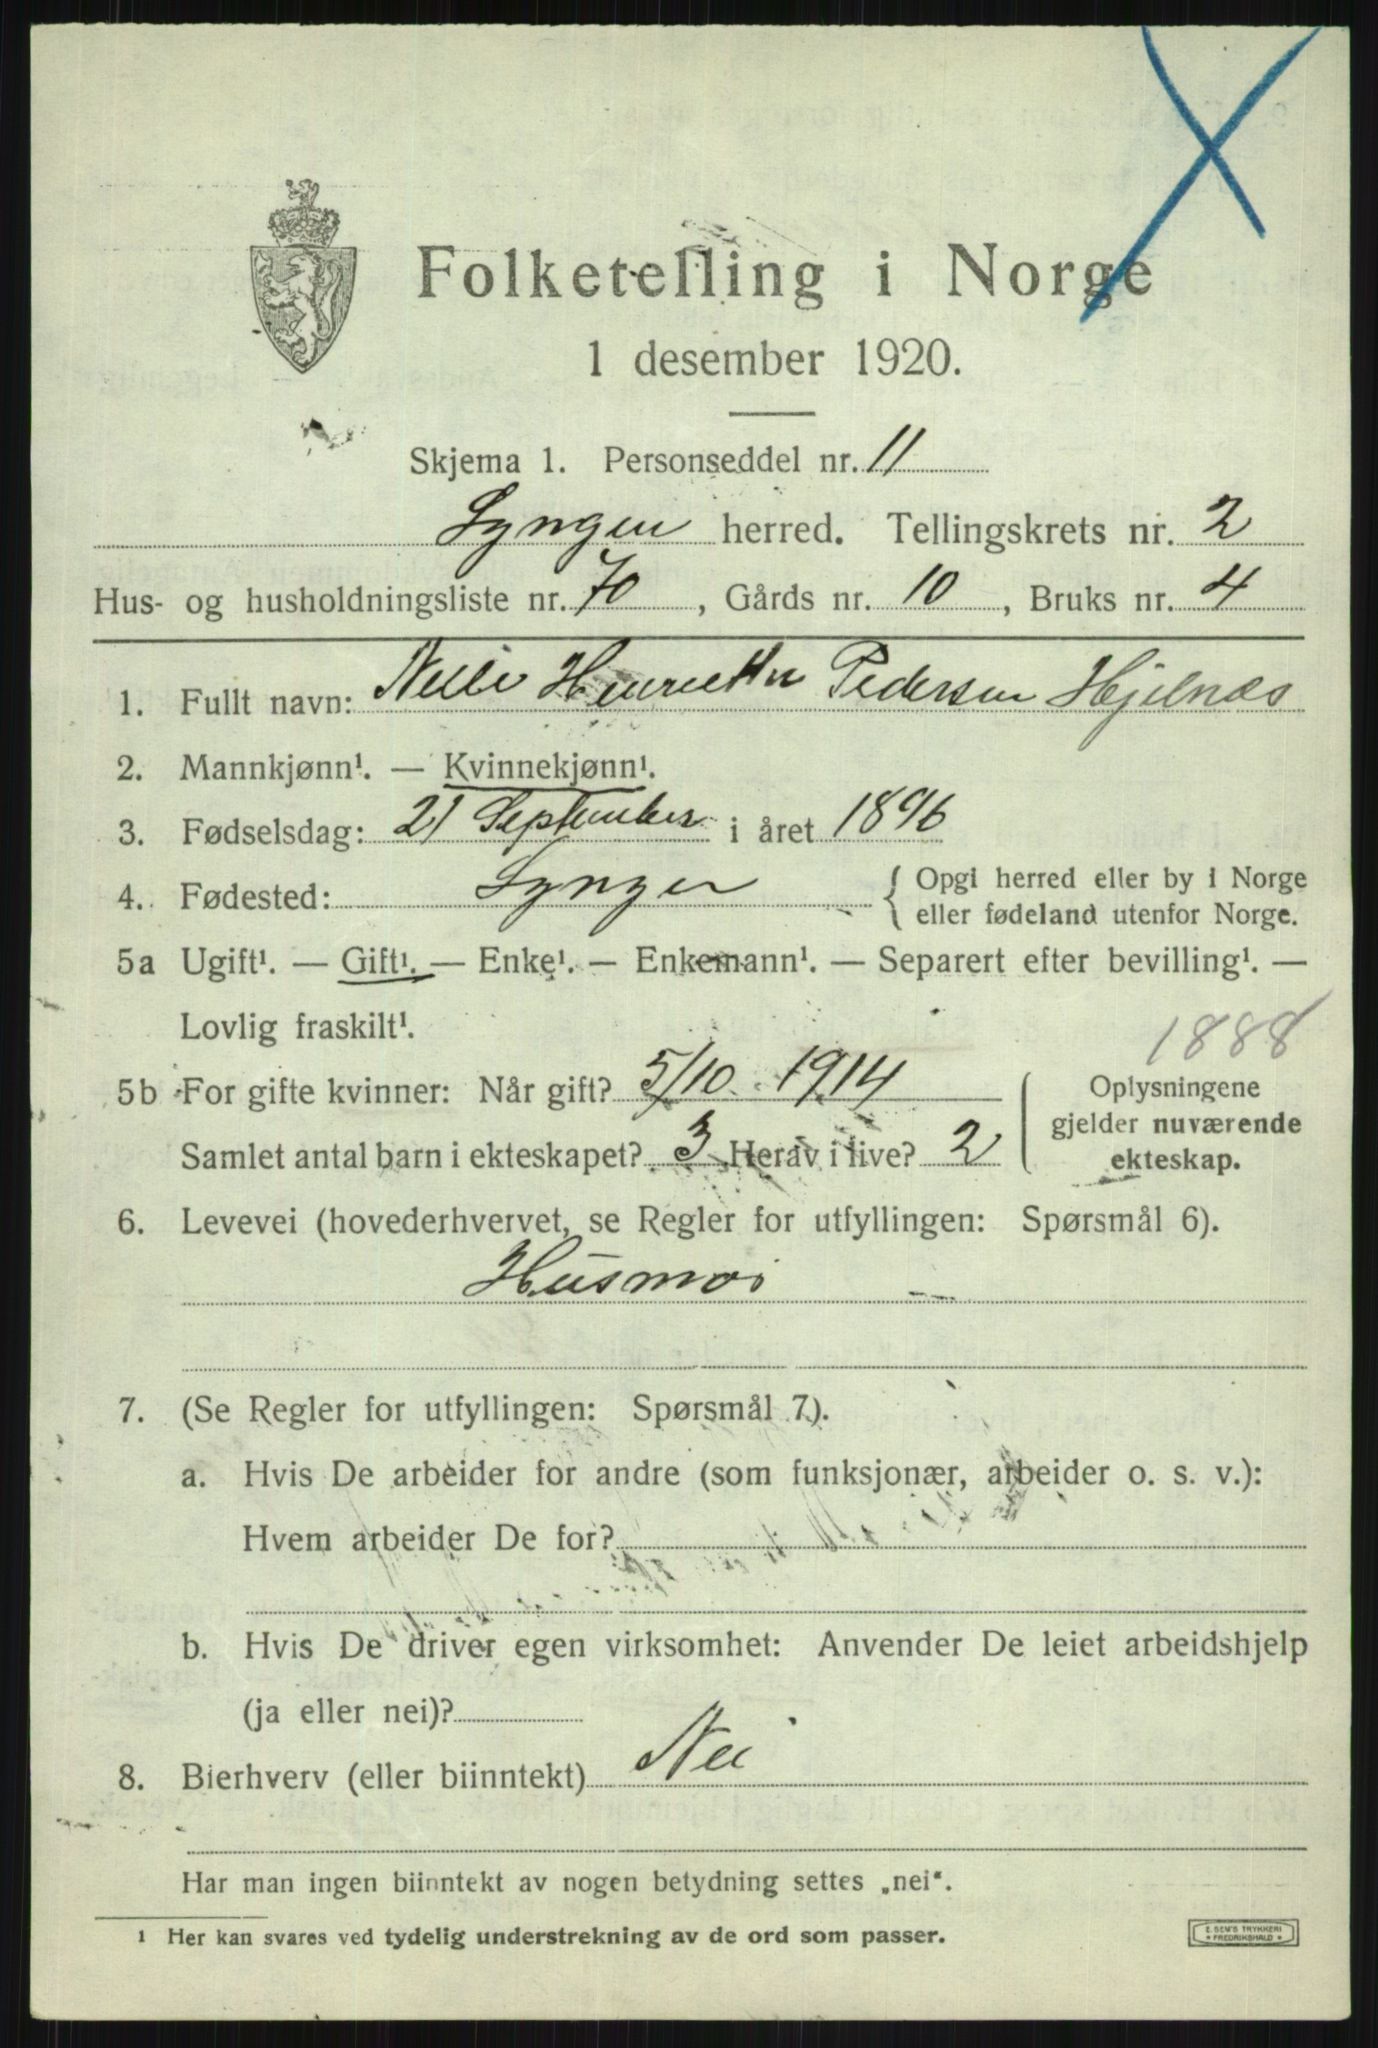 Folketelling i Norge
1 desember 1920.
Skjema 1. Personseddel nr. 11
Lyngen herred. Tellingskrets nr. 2
Hus- og husholdningsliste nr. 70, Gårds nr. 10, Bruks nr. 4
1. Fullt navn: Nelli Henrietta Pedersen Hjelnæs
2. Mannkjønn¹. — Kvinnekjønn¹.
3. Fødselsdag: 21 September i året 1896
4. Fødested: Lyngen { Opgi herred eller by i Norge
eller fødeland utenfor Norge.
5a Ugift¹. — Gift¹. — Enke¹. — Enkemann¹. — Separert efter bevilling¹. —
Lovlig fraskilt¹.
1888
5b For gifte kvinner: Når gift? 5/10 1914
Samlet antal barn i ekteskapet? 3 Herav i live? 2
{ Oplysningene
gjelder nuværende
ekteskap.
6. Levevei (hovederhvervet, se Regler for utfyllingen: Spørsmål 6).
Husmor
7. (Se Regler for utfyllingen: Spørsmål 7).
a. Hvis De arbeider for andre (som funksjonær, arbeider o. s. v.):
Hvem arbeider De for?
b. Hvis De driver egen virksomhet: Anvender De leiet arbeidshjelp
(ja eller nei)?
8. Bierhverv (eller biinntekt) Nei
Har man ingen biinntekt av nogen betydning settes „nei“.
¹ Her kan svares ved tydelig understrekning av de ord som passer.
E. SEM'S TRYKKERI
• FREDRIKSHALD •